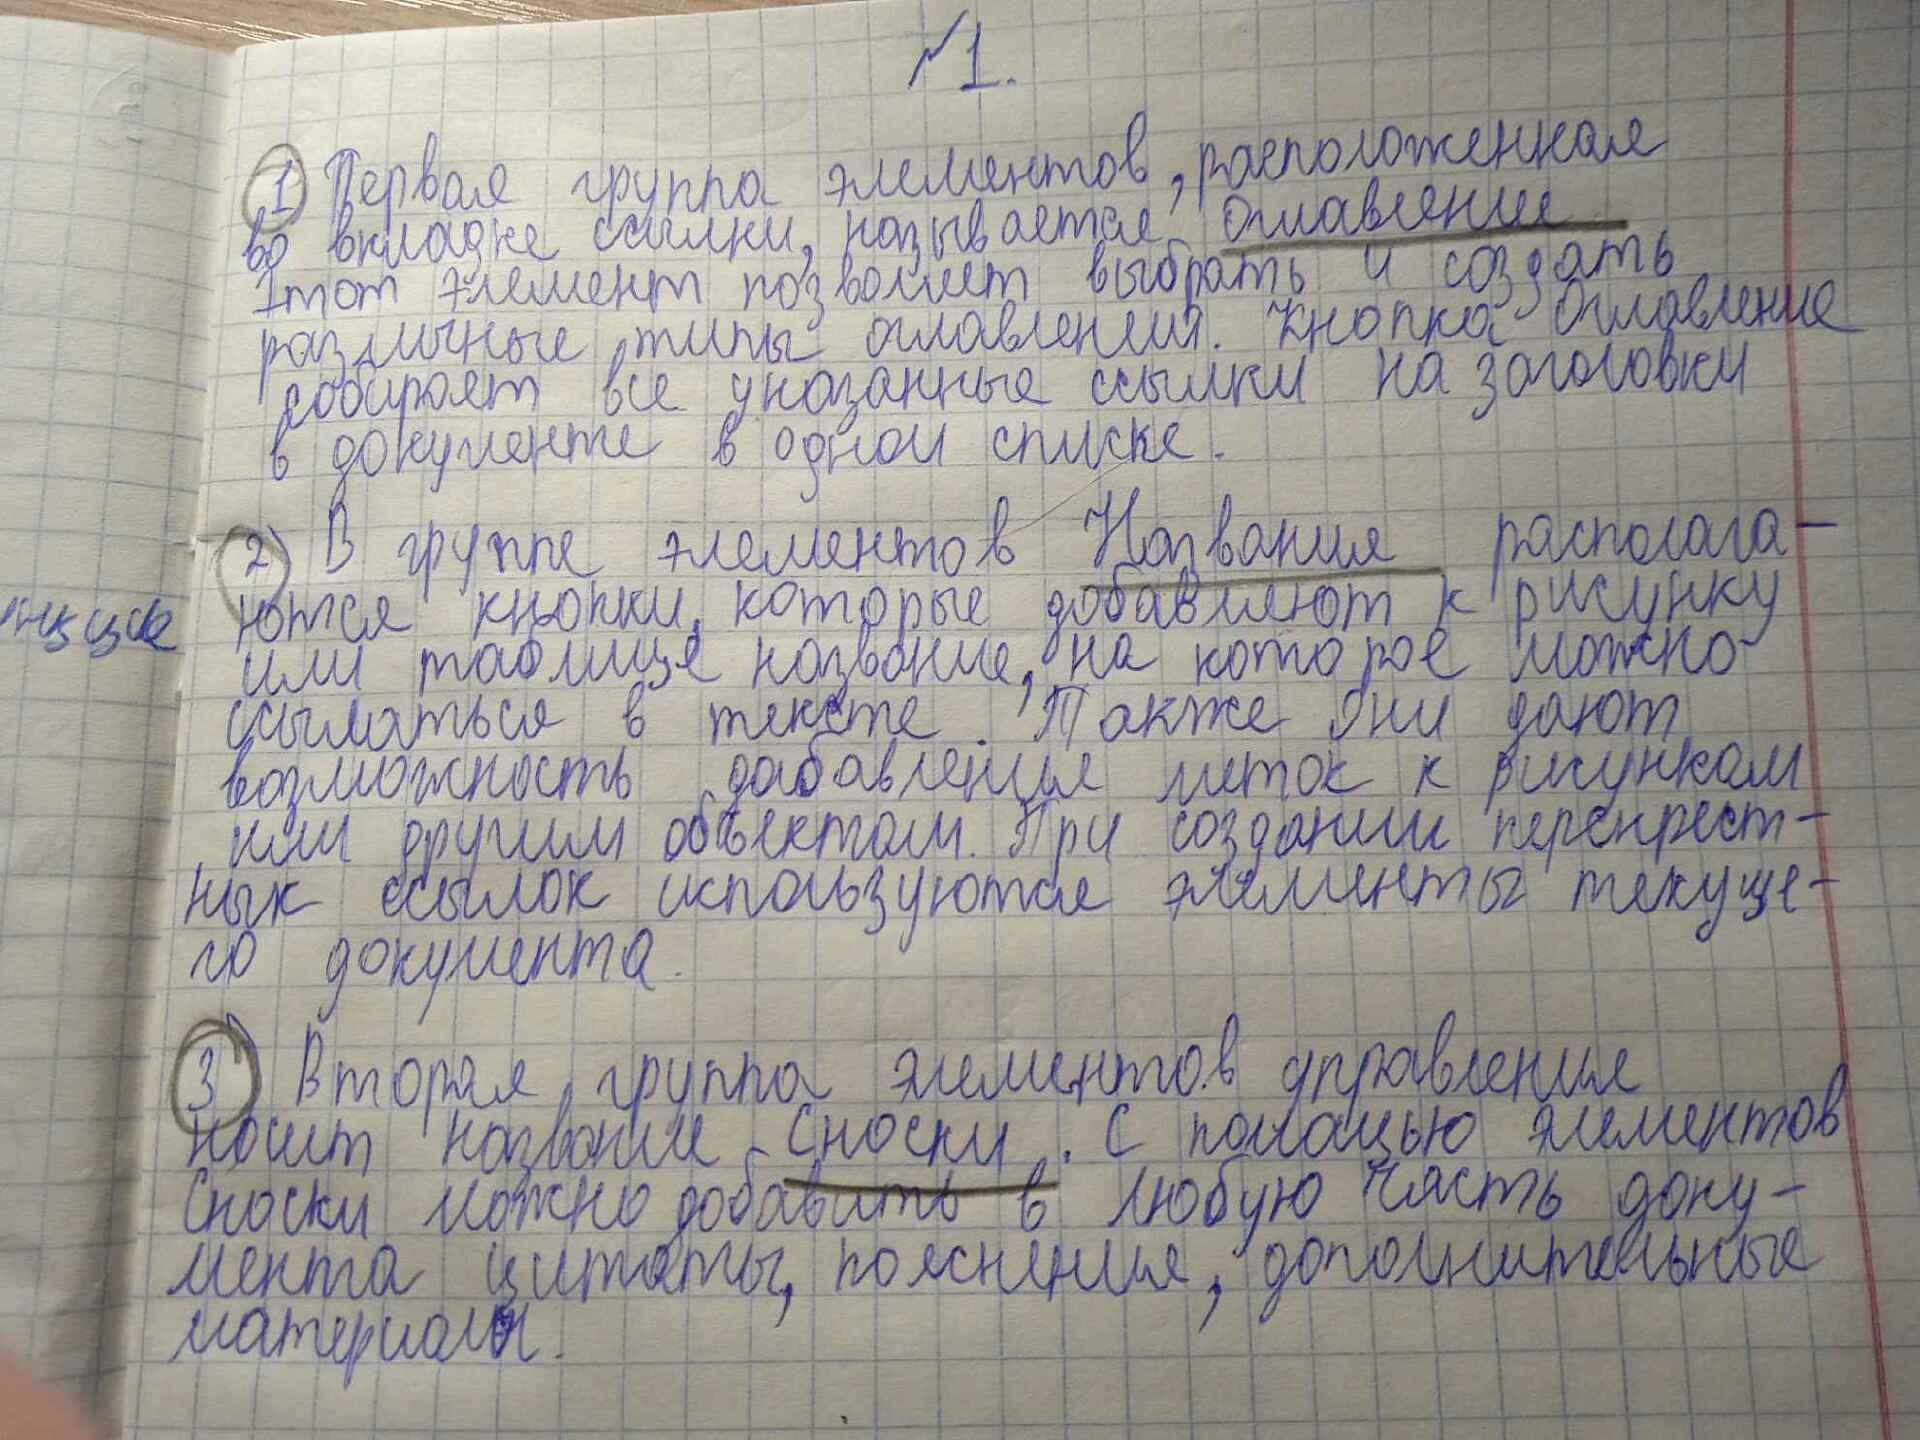 №1.
1) Первая группа элементов, расположенная
во вкладке ссылки, называется оглавление
Этот элемент позволяет выбрать и создать
различные типы оглавления. Кнопка Оглавление
собирает все указанные ссылки на заголовки
в документе в одном списке.
2) В группе элементов Названия располага-
ются кнопки, которые добавляют к рисунку
или таблице название, на которое можно
ссылаться в тексте. Также они дают
возможность добавления меток к рисункам
или другим объектам. При создании перекрест-
ных ссылок используются элементы текуще-
го документа.
3) Вторая группа элементов управления
носит название Сноски. С помощью элементов
Сноски можно добавить в любую часть доку-
мента цитаты, пояснения, дополнительные
материалы.